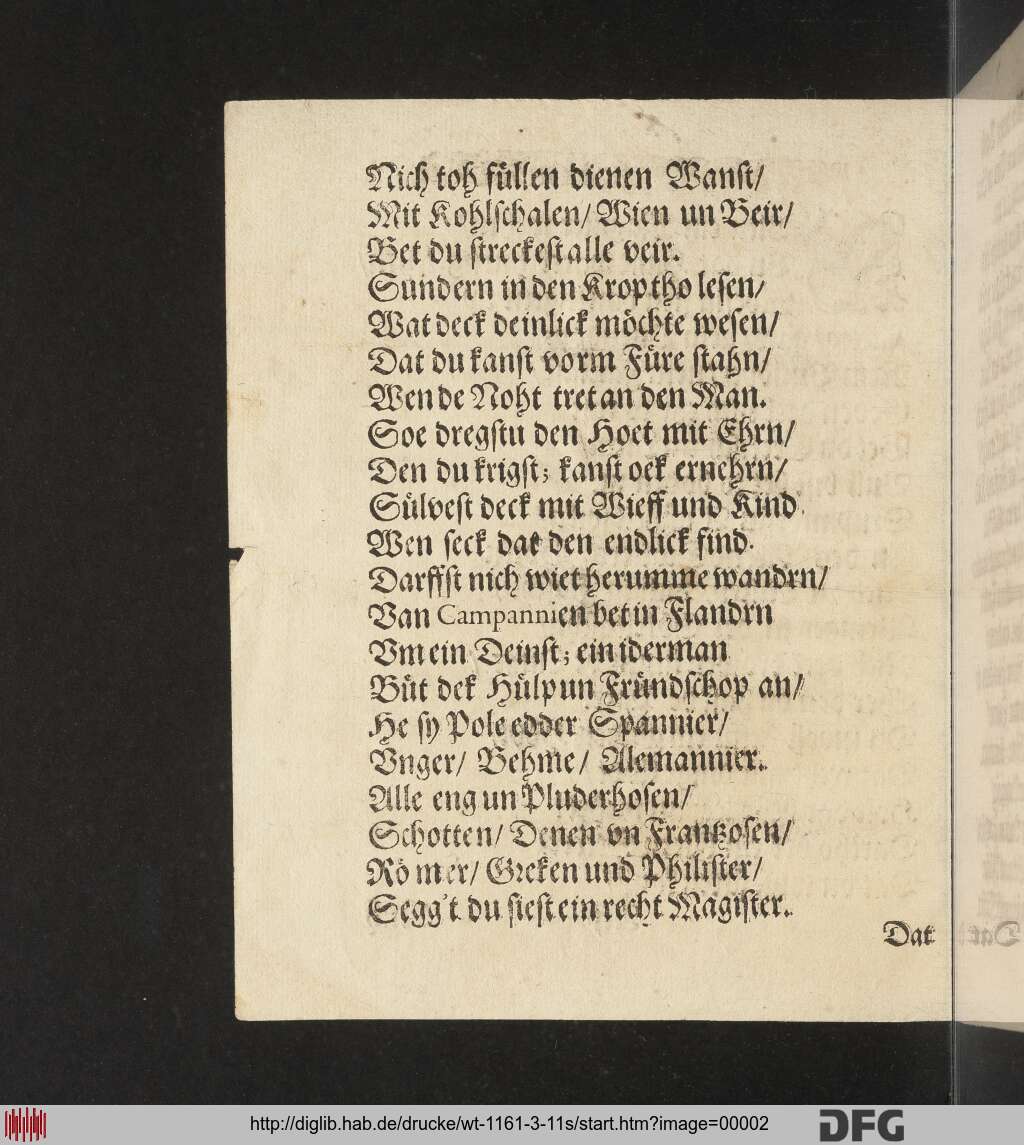 Nich toh füllen dienen Wanſt/
Mit Kohlſchalen/ Wien un Beir/
Bet du ſtreckeſt alle veir.
Sundern in den Krop tho leſen/
Wat deck deinlick möchte weſen/
Dat du kanſt vorm Füre ſtahn/
Wen de Noht tret an den Man.
Soe dregſtu den Hoet mit Ehrn/
Den du krigſt; kanſt ock ernehrn/
Sülveſt deck mit Wieff und Kind
Wen ſeck dat den endlick find.
Darffſt nich wiet herumme wandrn/
Van Campannien bet in Flandrn
Vm ein Deinſt; ein iderman
Büt dek Hülp un Fründſchop an/
He ſy Pole edder Spannier/
Vnger/ Behme/ Alemannier.
Alle eng un Pluderhoſen/
Schotten/ Denen vn Frantzoſen/
Römer/ Greken und Philiſter/
Segg't du ſieſt ein recht Magiſter.
Dat
http://diglib.hab.de/drucke/wt-1161-3-11s/start.htm?image=00002
DFG